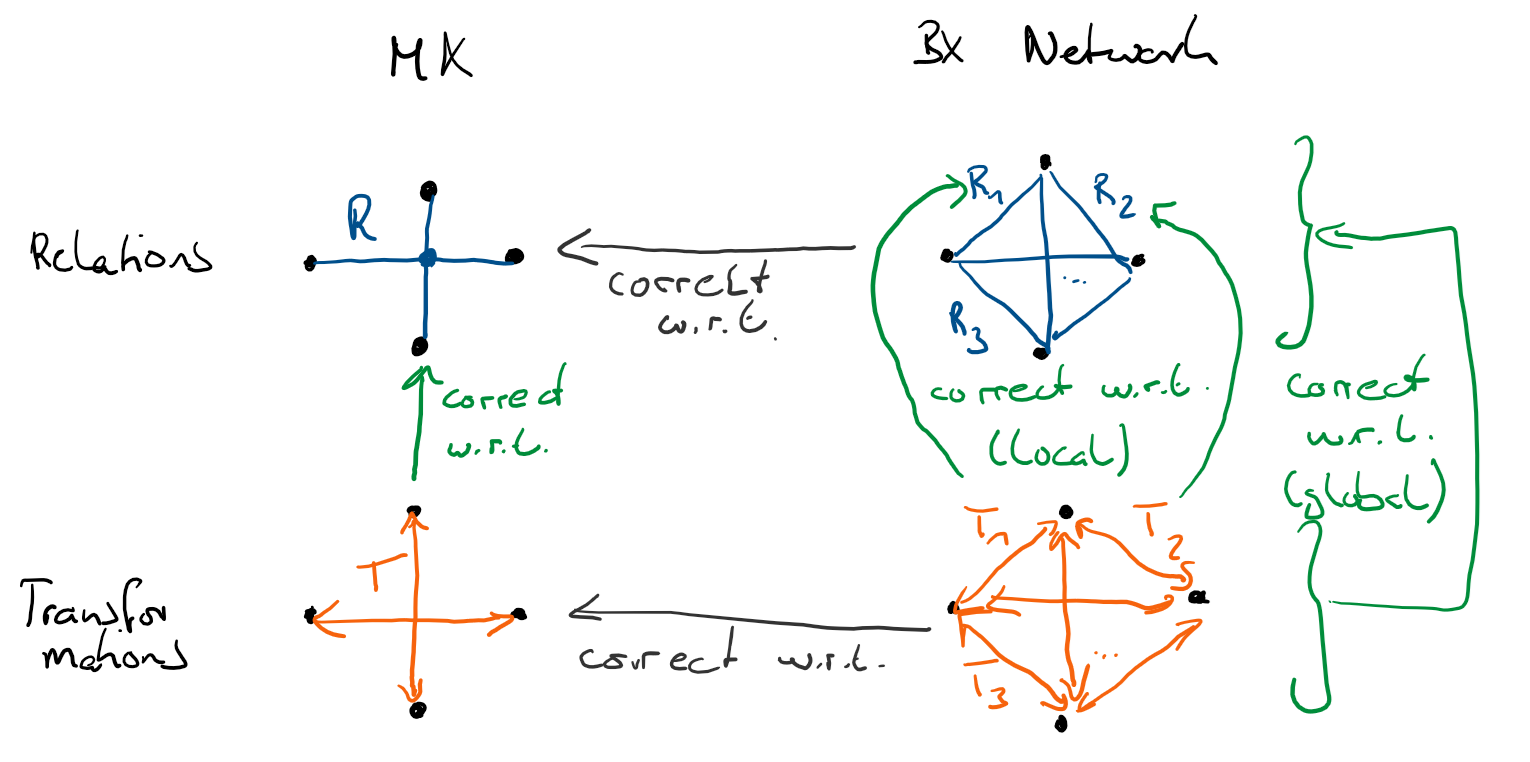 MX
Bx Network
Relations
R
correct
w.r.t.
R1
R2
R3
...
correct
w.r.t.
correct w.r.t.
(local)
correct
w.r.t.
(global)
Transfor
mations
T
correct w.r.t.
T1
T2
T3
...